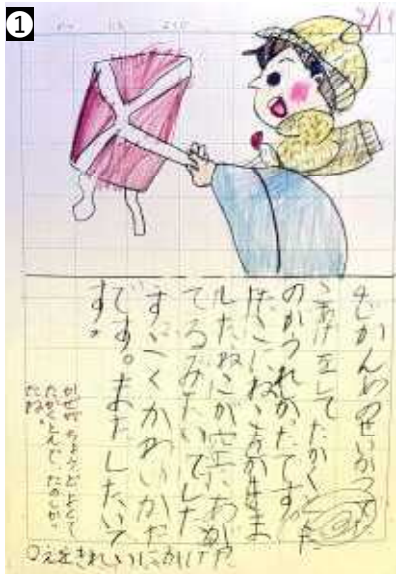 ❶
4じかんめのせいかつで、
こあげをしてたかく
のがうれかたです。
こにねこをかきま
したねこが空にあが
てるみたいでした
すごくかわいかた
です。またしたいで
す。
かぜがちょうどよくて
たかくとんで、たのしかっ
たね。
○えをきれいにかけた